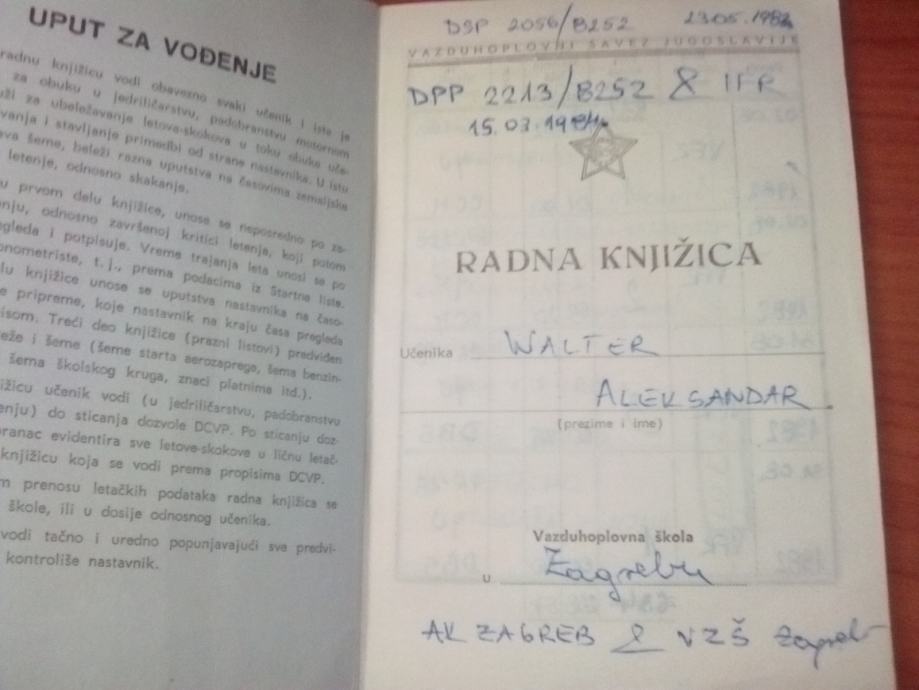 UPUT ZA VOĐENJE
radnu knjižicu vodi obavezno svaki učenik i ista je
za obuku u jedriličarstvu, padobranstvu motornom
uži za ubeležavanje letova-skokova u toku obuke uče-
vanja i stavljanje primedbi od strane nastavnika. U istu
eva šeme, beleži razna uputstva na časovima zemaljske
letenje, odnosno skakanja.
u prvom delu knjižice, unose se neposredno po za-
enju, odnosno završenoj kritici letenja, koji potom
egleda i potpisuje. Vreme trajanja leta unosi se po
onometriste, t. j., prema podacima iz Startne liste.
elu knjižice unose se uputstva nastavnika na časo-
e pripreme, koje nastavnik na kraju časa pregleda
isom. Treći deo knjižice (prazni listovi) predviđen
eže i šeme (šeme starta aerozaprega, šema benzin-
šema školskog kruga, znaci platnima itd.).
ižicu učenik vodi (u jedriličarstvu, padobranstvu
enju) do sticanja dozvole DCVP. Po sticanju doz-
branac evidentira sve letove-skokove u ličnu letač-
knjižicu koja se vodi prema propisima DCVP.
m prenosu letačkih podataka radna knjižica se
škole, ili u dosije odnosnog učenika.
vodi tačno i uredno popunjavajući sve predvi-
kontroliše nastavnik.
DSP 2056/8252 23.05.1983
VAZDUHOPLOVNI SAVEZ JUGOSLAVIJE
DPP 2213/8252 & IFR
15.03.1984.
RADNA KNJIŽICA
Učenika WALTER
ALEKSANDAR.
(prezime i ime)
Vazduhoplovna škola
u Zagrebu
AK ZAGREB & VZŠ Zagreb